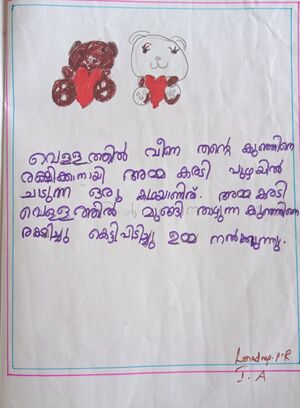 വെള്ളത്തിൽ വീണ തന്റെ കുഞ്ഞിനെ
രക്ഷിക്കാനായി അമ്മ കരടി പുഴയിൽ
ചാടുന്ന ഒരു കഥയാണിത്. അമ്മ കരടി
വെള്ളത്തിൽ മുങ്ങി താഴുന്ന കുഞ്ഞിനെ
രക്ഷിച്ചു കെട്ടിപിടിച്ചു ഉമ്മ നൽകുന്നു.
P.R
I. A